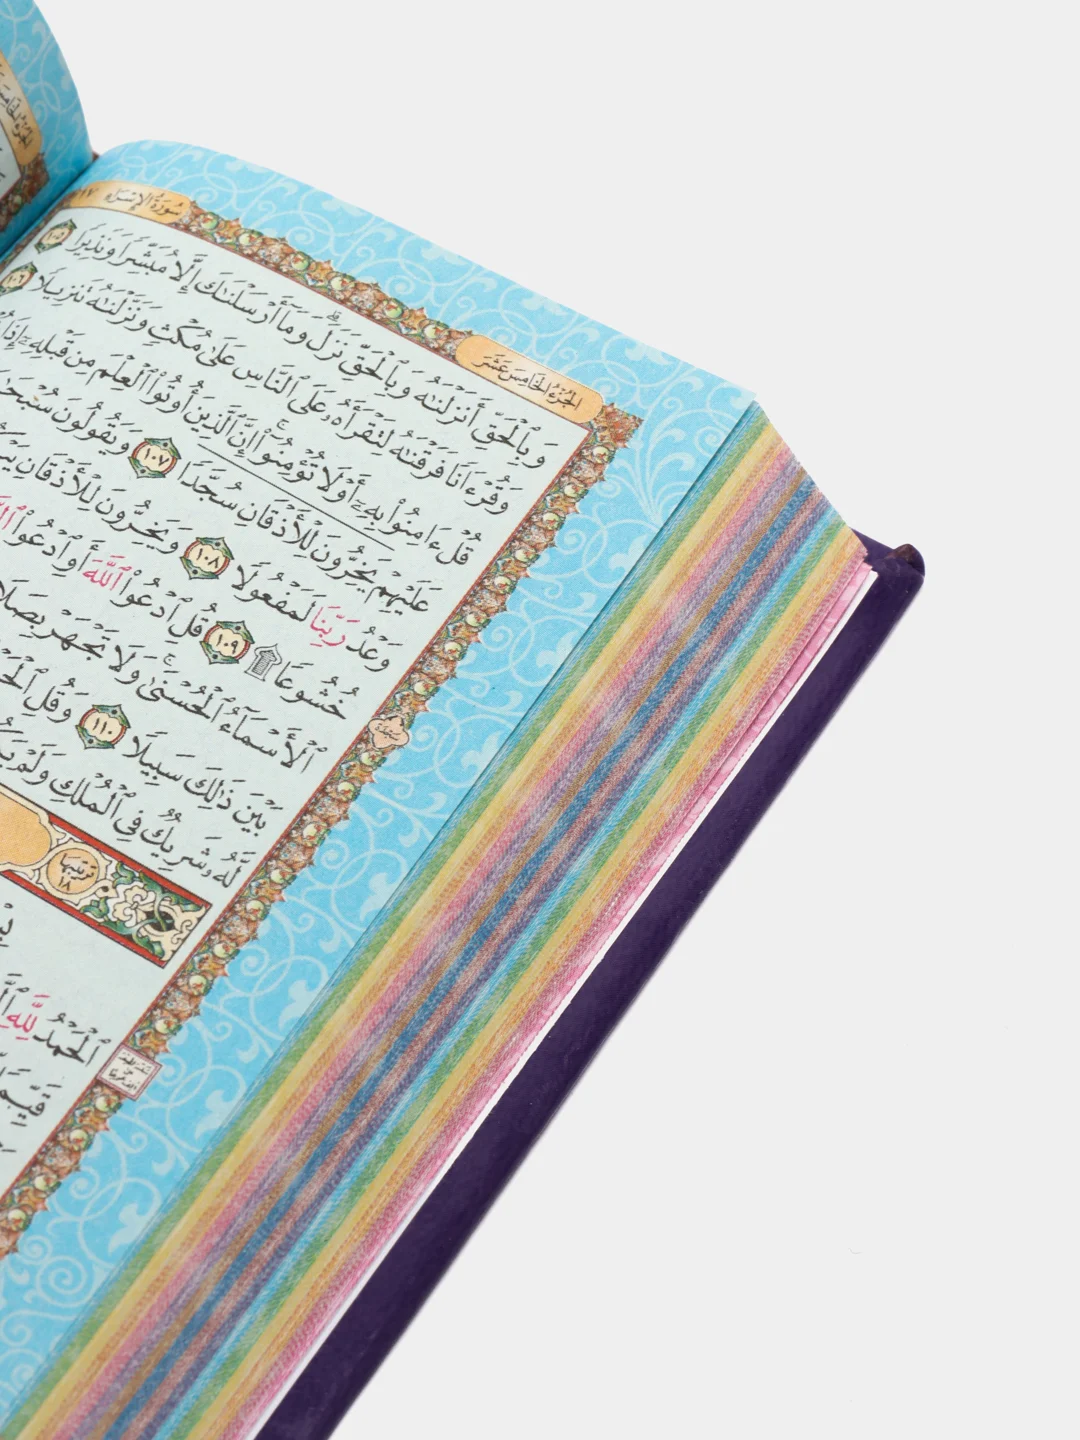 سُورَةُ الإِسْرَاءِ ١٧
الجُزْءُ الخَامِسَ عَشَرَ
وَبِٱلْحَقِّ أَنزَلْنَـٰهُ وَبِٱلْحَقِّ نَزَلَ ۗ وَمَآ أَرْسَلْنَـٰكَ إِلَّا مُبَشِّرًا وَنَذِيرًا ١٠٥
وَقُرْءَانًا فَرَقْنَـٰهُ لِتَقْرَأَهُۥ عَلَى ٱلنَّاسِ عَلَىٰ مُكْثٍ وَنَزَّلْنَـٰهُ تَنزِيلًا ١٠٦
قُلْ ءَامِنُوا۟ بِهِۦٓ أَوْ لَا تُؤْمِنُوٓا۟ ۚ إِنَّ ٱلَّذِينَ أُوتُوا۟ ٱلْعِلْمَ مِن قَبْلِهِۦٓ إِذَا
عَلَيْهِمْ يَخِرُّونَ لِلْأَذْقَانِ سُجَّدًا ١٠٧ وَيَقُولُونَ
وَعْدُ رَبِّنَا لَمَفْعُولًا ١٠٨ وَيَخِرُّونَ لِلْأَذْقَانِ
خُشُوعًا ۩ ١٠٩ قُلِ ٱدْعُوا۟ ٱللَّهَ أَوِ ٱدْعُوا۟
ٱلْأَسْمَآءُ ٱلْحُسْنَىٰ ۚ وَلَا تَجْهَرْ
بَيْنَ ذَٰلِكَ سَبِيلًا ١١٠ وَقُلِ
لَّهُۥ شَرِيكٌ فِى ٱلْمُلْكِ وَلَمْ
سجدة
ترتيبها ١٨
ٱلْحَمْدُ لِلَّهِ